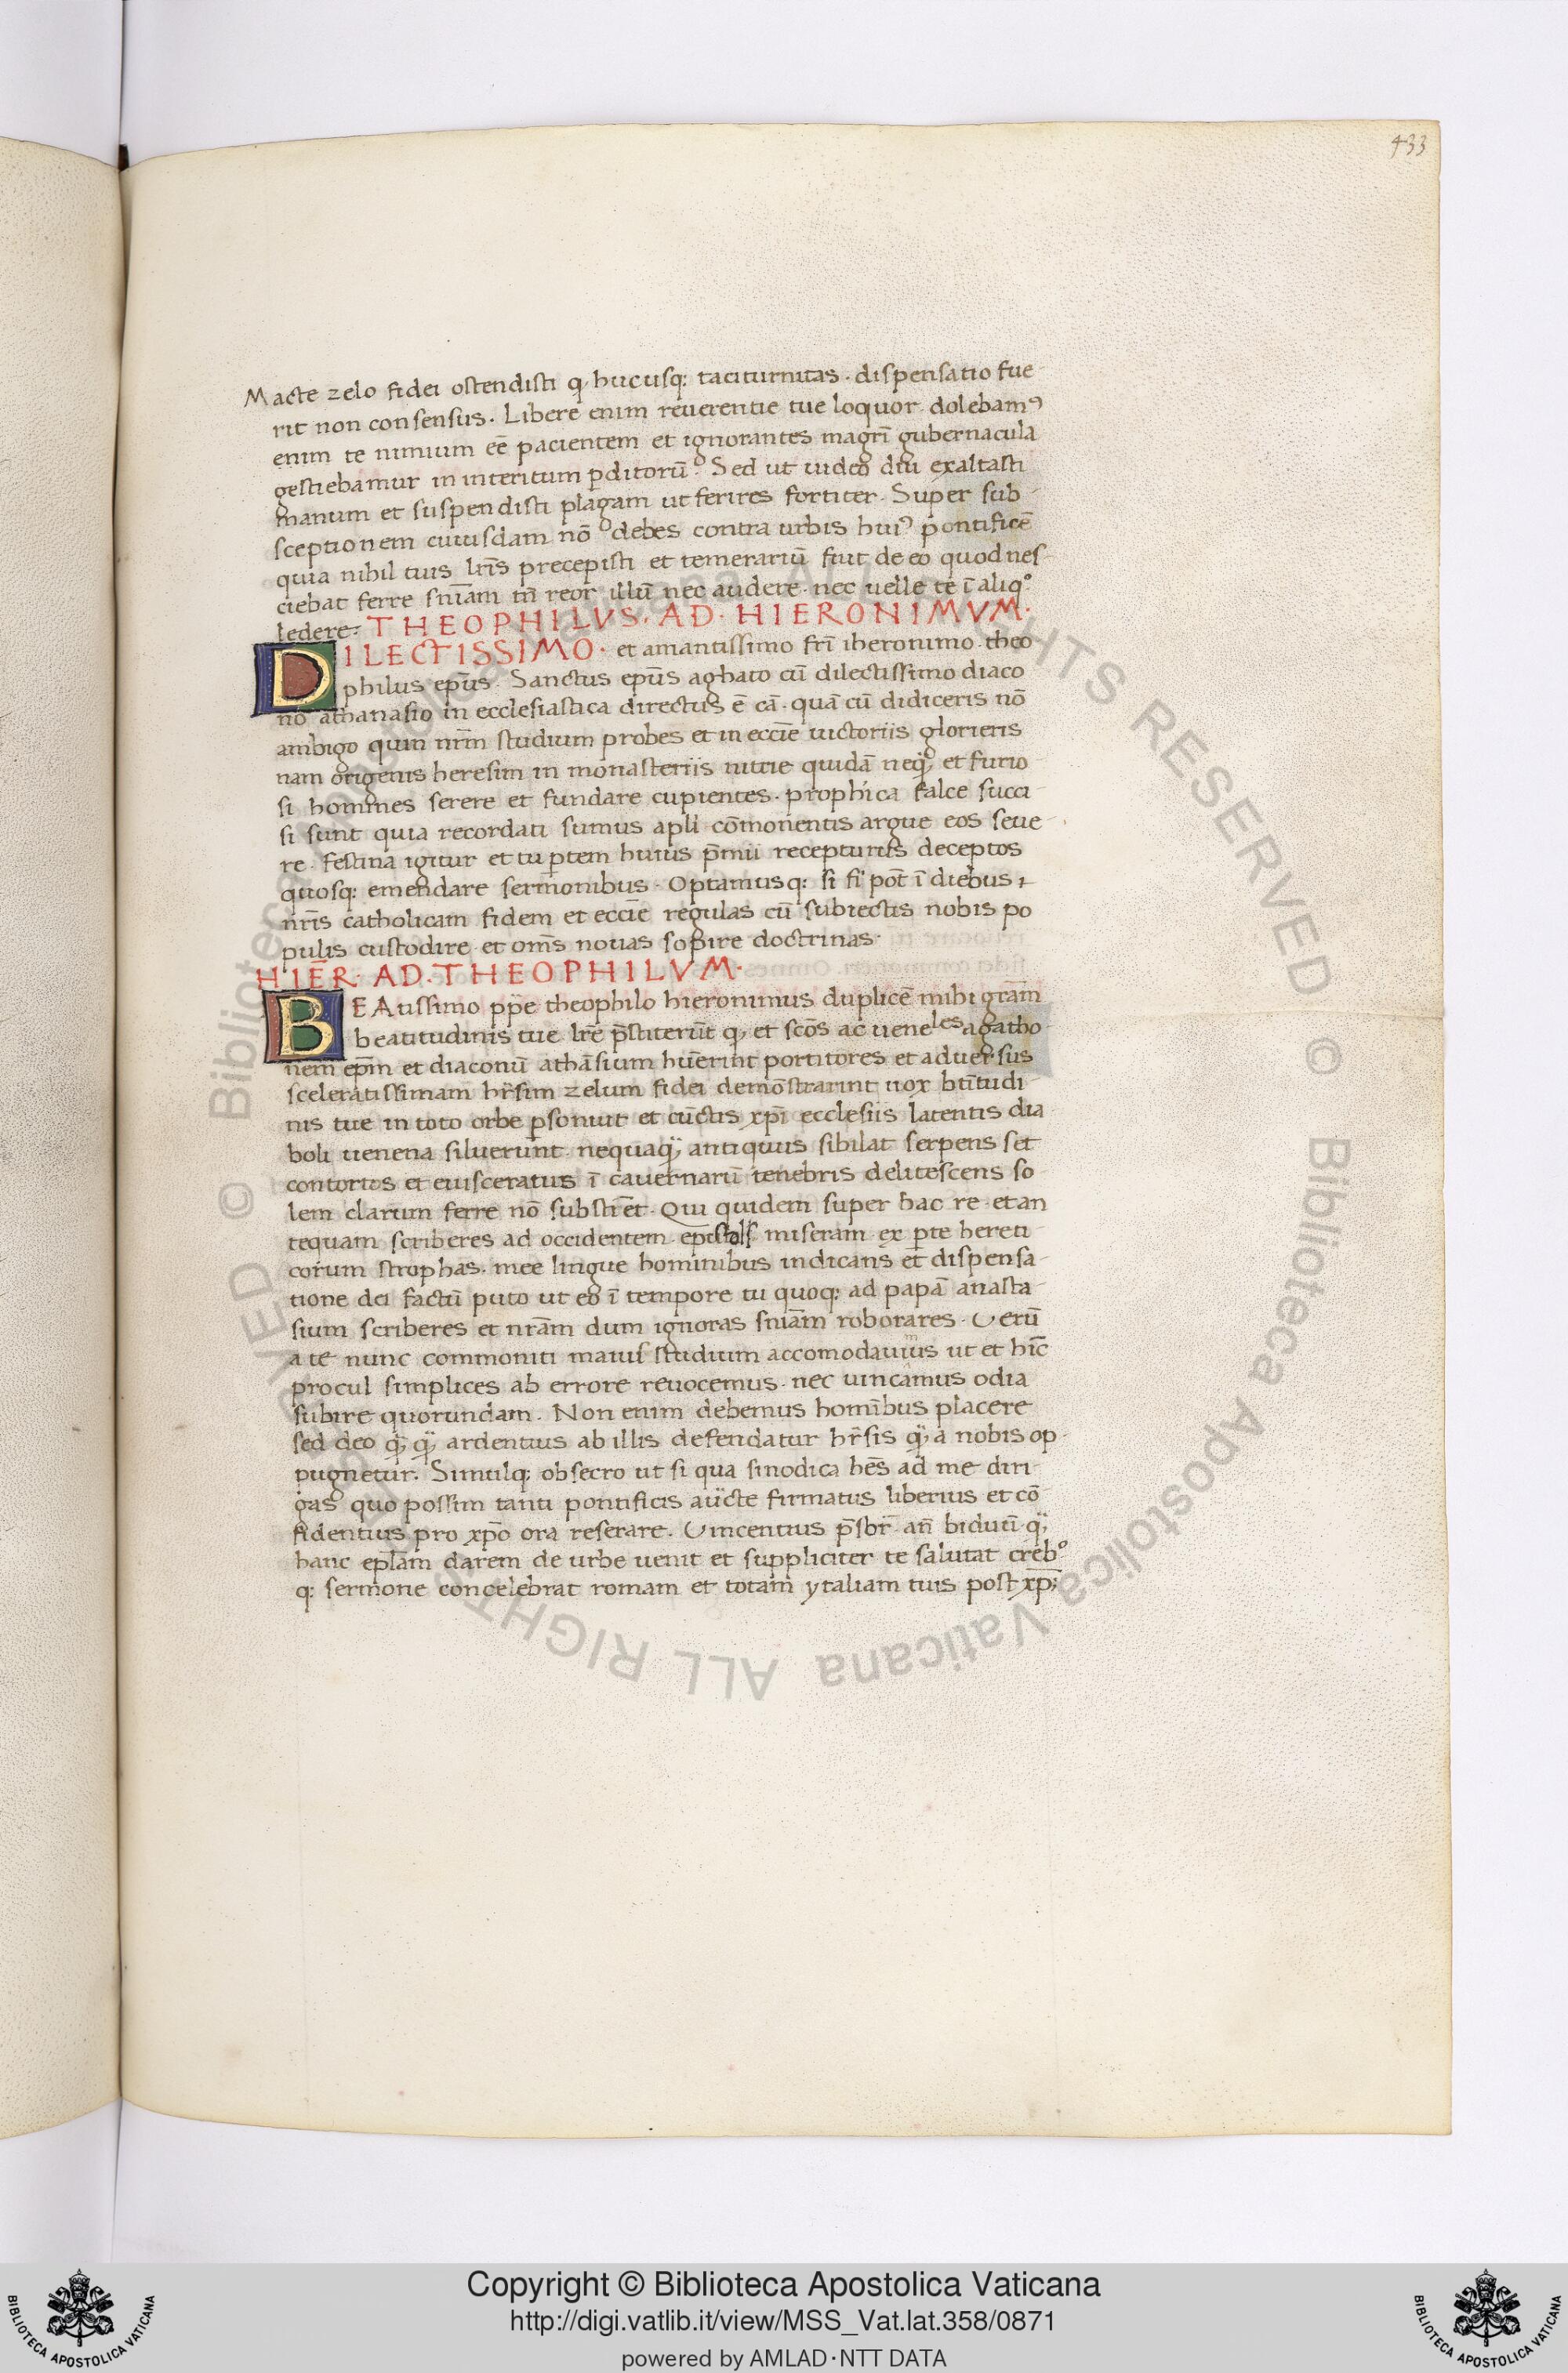 433
Macte zelo fidei ostendisti q, hucusq: taciturnitas . dispensatio fue
rit non consensus . Libere enim reuerentie tue loquor . dolebamꝰ
enim te nimium eē pacientem et ignorantes magrī gubernacula
gestiebamur in interitum ꝑditorū . Sed ut uideo diu exaltasti
manum et suspendisti plagam ut ferires fortiter . Super sub
sceptionem cuiusdam nō debes contra urbis huiꝰ pontificē
quia nihil tuis lrīs precepisti et temerariū fuit de eo quod nes
ciebat ferre snīam tn̄ reor illū nec audere . nec uelle te ī aliqº
ledere . THEOPHILVS . AD . HIERONIMVM .
DILECTISSIMO . et amantissimo frī iheronimo . theo
philus epūs . Sanctus epūs aghato cū dilectissimo diaco
no athanasio in ecclesiastica directus ē cā . quā cū didiceris nō
ambigo quin nrm̄ studium probes et in eccīe uictoriis glorieris
nam origenis heresim in monasteriis nitrie quidā neq; et furio
si homines serere et fundare cupientes . prophica falce succi
si sunt quia recordati sumus apli cōmonentis argue eos seue
re . festina igitur et tu ꝑtem huius p̄mii recepturus deceptos
quosq: emendare sermonibus . Optamusq: si fi pōt ī diebus
nrīs catholicam fidem et eccīe regulas cū subiectis nobis po
pulis custodire et om̄s nouas sopire doctrinas .
HIER̄ . AD . THEOPHILVM .
BEAtissimo pp̄e theophilo hieronimus duplicē mihi grām
beatitudinis tue lrē p̄stiterūt q, et scōs ac ueneles agatho
nem ep̄m et diaconū athāsium hūerint portitores et aduersus
sceleratissimam hr̄sim zelum fidei demōstrarint uox btītudi
nis tue in toto orbe ꝑsonuit et cūctis xpī ecclesiis latentis dia
boli uenena siluerunt . nequaq, antiquus sibilat serpens set
contortos et euisceratus ī cauernarū tenebris delitescens so
lem clarum ferre nō substīet . Qui quidem super hac re . et an
tequam scriberes ad occidentem epistols miseram ex ꝑte hereti
corum strophas . mee lingue hominibus indicans et dispensa
tione dei factū puto ut eo ī tempore tu quoq: ad papā anasta
sium scriberes et nrām dum ignoras snīam roborares . Verū
a te nunc commoniti maiuſ studium accomodauimus ut et hīc
procul simplices ab errore reuocemus . nec uincamus odia
subire quorundam . Non enim debemus homībus placere
sed deo q, q, ardentius ab illis defendatur hr̄sis q, a nobis op
pugnetur . Simulq; obsecro ut si qua sinodica hēs ad me diri
gas quo possim tanti pontificis aūcte firmatus liberius et cō
fidentius pro xpō ora reserare . Vincentius p̄sbr̄ an̄ biduū q,
hanc eplām darem de urbe uenit et suppliciter te salutat crebº
q: sermone concelebrat romam et totam ytaliam tuis post xp̄;
© Biblioteca Apostolica Vaticana ALL RIGHTS RESERVED © Biblioteca Apostolica Vaticana ALL RIGHTS RESERVED
BIBLIOTECA APOSTOLICA VATICANA
Copyright © Biblioteca Apostolica Vaticana
http://digi.vatlib.it/view/MSS_Vat.lat.358/0871
powered by AMLAD·NTT DATA
BIBLIOTECA APOSTOLICA VATICANA